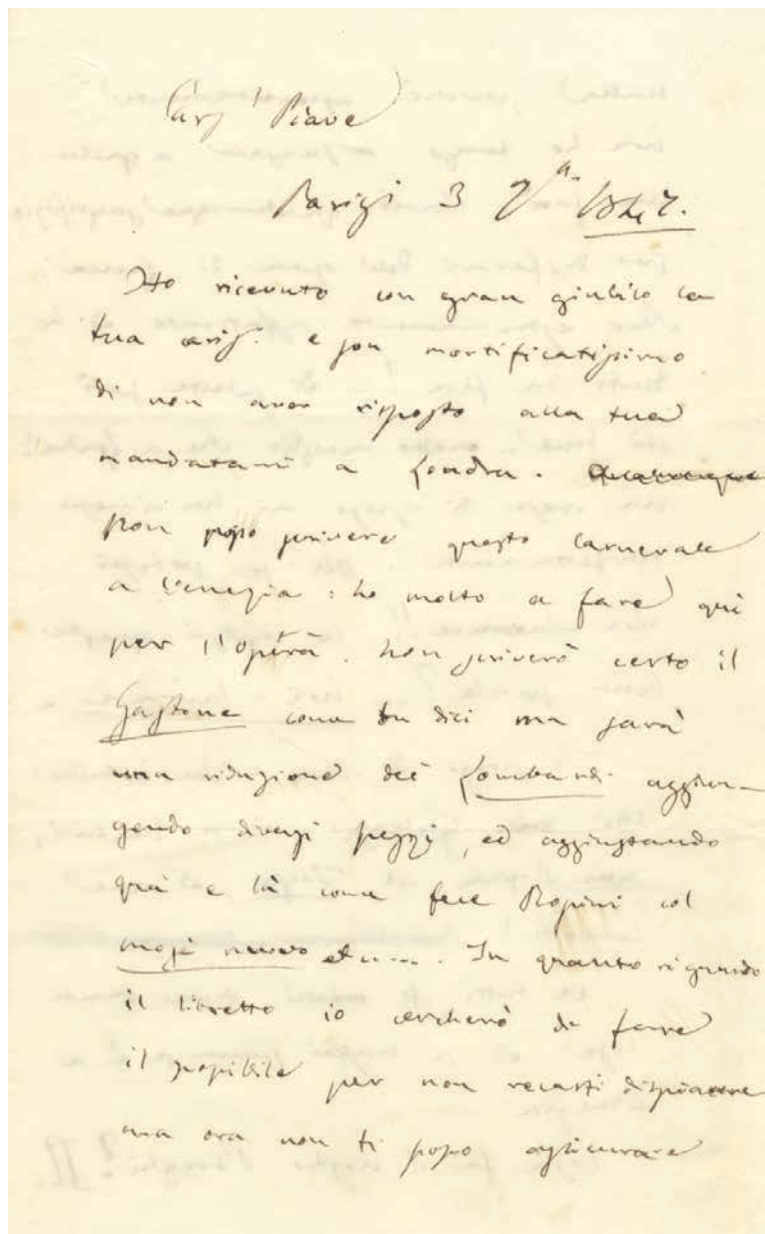 Car.o Piave
Parigi 3 7bre 1847.
Ho ricevuto con gran giubilo la
tua cariss. e son mortificatissimo
di non aver risposto alla tua
mandatami a Londra.
Non posso scrivere questo carnevale
a Venezia: ho molto a fare quì
per l'opéra. Non scriverò certo il
Gastone come tu dici ma sarà
una riduzione dei Lombardi aggiun-
gendo diversi pezzi, ed aggiustando
quà e là come fece Rossini col
Mosè nuovo et.... In quanto riguardo
il libretto io cercherò di fare
il possibile per non recarti dispiacere
ma ora non ti posso assicurare